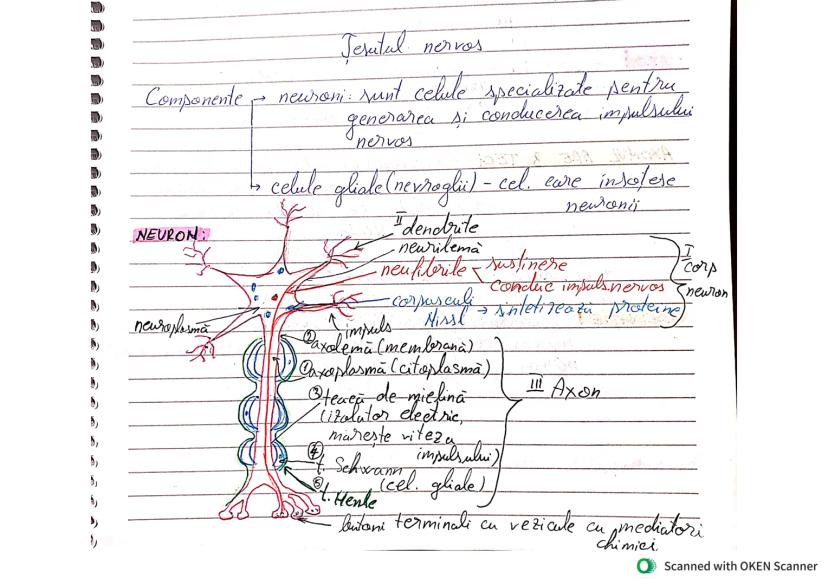 Țesutul nervos
Componente → neuroni: sunt celule specializate pentru
generarea și conducerea impulsului
nervos
→ celule gliale (nevroglii) - cel. care însoțesc
neuronii
NEURON:
II dendrite
neurilemă
neufibrile < susținere
conduc impuls. nervos
corpusculi
Nissl → sintetizează proteine
I corp
neuron
neuroplasmă
impuls
② axolemă (membrană)
① axoplasmă (citoplasmă)
③ teacă de mielină
(izolator electric,
mărește viteza
impulsului)
④ t. Schwann
(cel. gliale)
⑤ t. Henle
III Axon
butoni terminali cu vezicule cu mediatori
chimici.
Scanned with OKEN Scanner